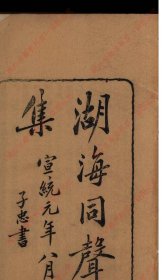 湖海同聲
集
宣統元年八月
子忠書